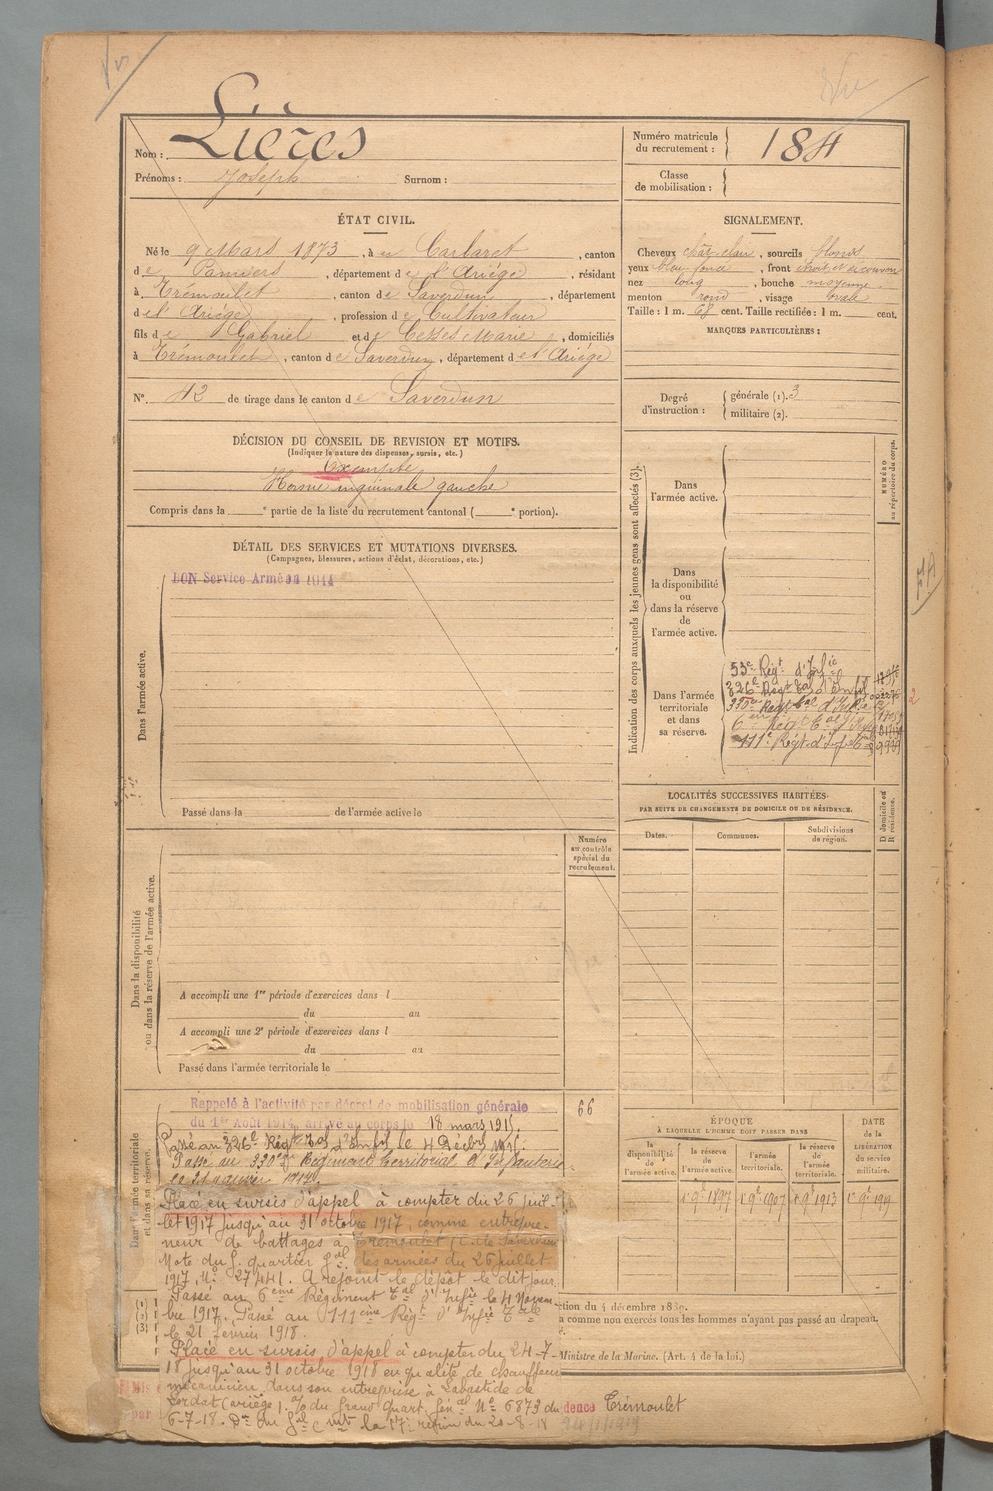 Vu
Vu
Nom : Lières
Prénoms : Joseph Surnom :
Numéro matricule
du recrutement : 184
Classe
de mobilisation :
ÉTAT CIVIL.
Né le 9 Mars 1873, à Carlaret, canton
de Pamiers, département de l'Ariége, résidant
à Trémoulet, canton de Saverdun, département
de l'Ariége, profession de Cultivateur
fils de Gabriel et de Marie, domiciliés
à Trémoulet, canton de Saverdun, département de l'Ariége
N° 42 de tirage dans le canton de Saverdun
SIGNALEMENT.
Cheveux chat. clair, sourcils blonds
yeux bleu foncé, front étroit et découvert
nez long, bouche moyenne
menton rond, visage ovale
Taille : 1 m. 68 cent. Taille rectifiée : 1 m. cent.
MARQUES PARTICULIÈRES :
Degré
d'instruction :
générale (1). 3
militaire (2).
DÉCISION DU CONSEIL DE REVISION ET MOTIFS.
(Indiquer la nature des dispenses, sursis, etc.)
Exempté
Hernie inguinale gauche
Compris dans la e partie de la liste du recrutement cantonal ( e portion).
DÉTAIL DES SERVICES ET MUTATIONS DIVERSES.
(Campagnes, blessures, actions d'éclat, décorations, etc.)
BON Service Armé en 1914
Dans l'armée active.
Passé dans la de l'armée active le
Indication des corps auxquels les jeunes gens sont affectés (3).
NUMÉRO
au répertoire du corps.
Dans
l'armée active.
Dans
la disponibilité
ou
dans la réserve
de
l'armée active.
Dans l'armée
territoriale
et dans
sa réserve.
53e Régt d'Infie
326e Régt Tal d'Infie
330e Régt Tal d'Infie
6eme Régt Tal d'Infie
111e Régt d'Infie Tale
LOCALITÉS SUCCESSIVES HABITÉES
PAR SUITE DE CHANGEMENTS DE DOMICILE OU DE RÉSIDENCE.
D domicile ou
R résidence.
Dates. Communes. Subdivisions
de région.
Numéro
au contrôle
spécial du
recrutement.
66
Dans la disponibilité
ou dans la réserve de l'armée active.
A accompli une 1re période d'exercices dans l
du au
A accompli une 2e période d'exercices dans l
du au
Passé dans l'armée territoriale le
Dans l'armée territoriale
et dans sa réserve.
Rappelé à l'activité par décret de mobilisation générale
du 1er Août 1914, arrivé au corps le 18 mars 1915.
Passé au 326e Régt Tal d'Infie le 4 Décbre 1915.
Passé au 330e Régiment territorial d'Infanterie
Placé en sursis d'appel à compter du 26 juil-
let 1917 jusqu'au 31 octobre 1917, comme entrepre-
neur de battages à Trémoulet, Cton de Saverdun
Note du G. quartier Gal des armées du 26 juillet
1917, No 27441. A rejoint le dépôt le dit jour.
Passé au 6eme Régiment Tal d'Infie le 4 Novem-
bre 1917. Passé au 111eme Régt d'Infie Tale
le 21 février 1918.
Placé en sursis d'appel à compter du 24-7-
18 jusqu'au 31 octobre 1918 en qualité de chauffeur
mécanicien dans son entreprise à Labastide de
Lordat (Ariége). % du Grand Quart. Génal No 6873 du
6-7-18.
ÉPOQUE
À LAQUELLE L'HOMME DOIT PASSER DANS
DATE
de la
LIBÉRATION
du service
militaire.
la
disponibilité
de
l'armée active.
la réserve
de
l'armée active.
l'armée
territoriale.
la réserve
de
l'armée
territoriale.
1er 9bre 1897 1er 9bre 1907 1er 9bre 1913 1er 9bre 1919
(1)
(2)
(3)
ction du 4 décembre 1889.
a comme non exercés tous les hommes n'ayant pas passé au drapeau.
Ministre de la Marine. (Art. 4 de la loi.)
dence Trémoulet